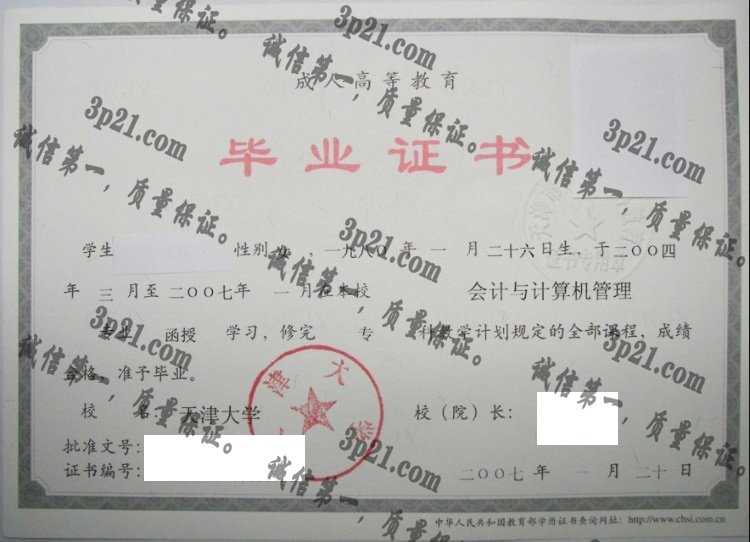 成人高等教育
毕业证书
学生 性别 女 , 一九八〇 年 一 月 二十六 日生, 于二〇〇四
年 三 月至 二〇〇七 年 一 月在本校 会计与计算机管理
专业 函授 学习, 修完 专 科教学计划规定的全部课程, 成绩
合格, 准予毕业。
校 名: 天津大学 校(院)长:
批准文号:
证书编号:
二〇〇七 年 一 月 二十 日
中华人民共和国教育部学历证书查询网址: http://www.chsi.com.cn
天津大学
3p21.com
诚信第一,质量保证。
3p21.com
诚信第一,质量保证。
3p21.com
诚信第一,质量保证。
3p21.com
诚信第一,质量保证。
3p21.com
诚信第一,质量保证。
3p21.com
诚信第一,质量保证。
3p21.com
诚信第一,质量保证。
质量保证。